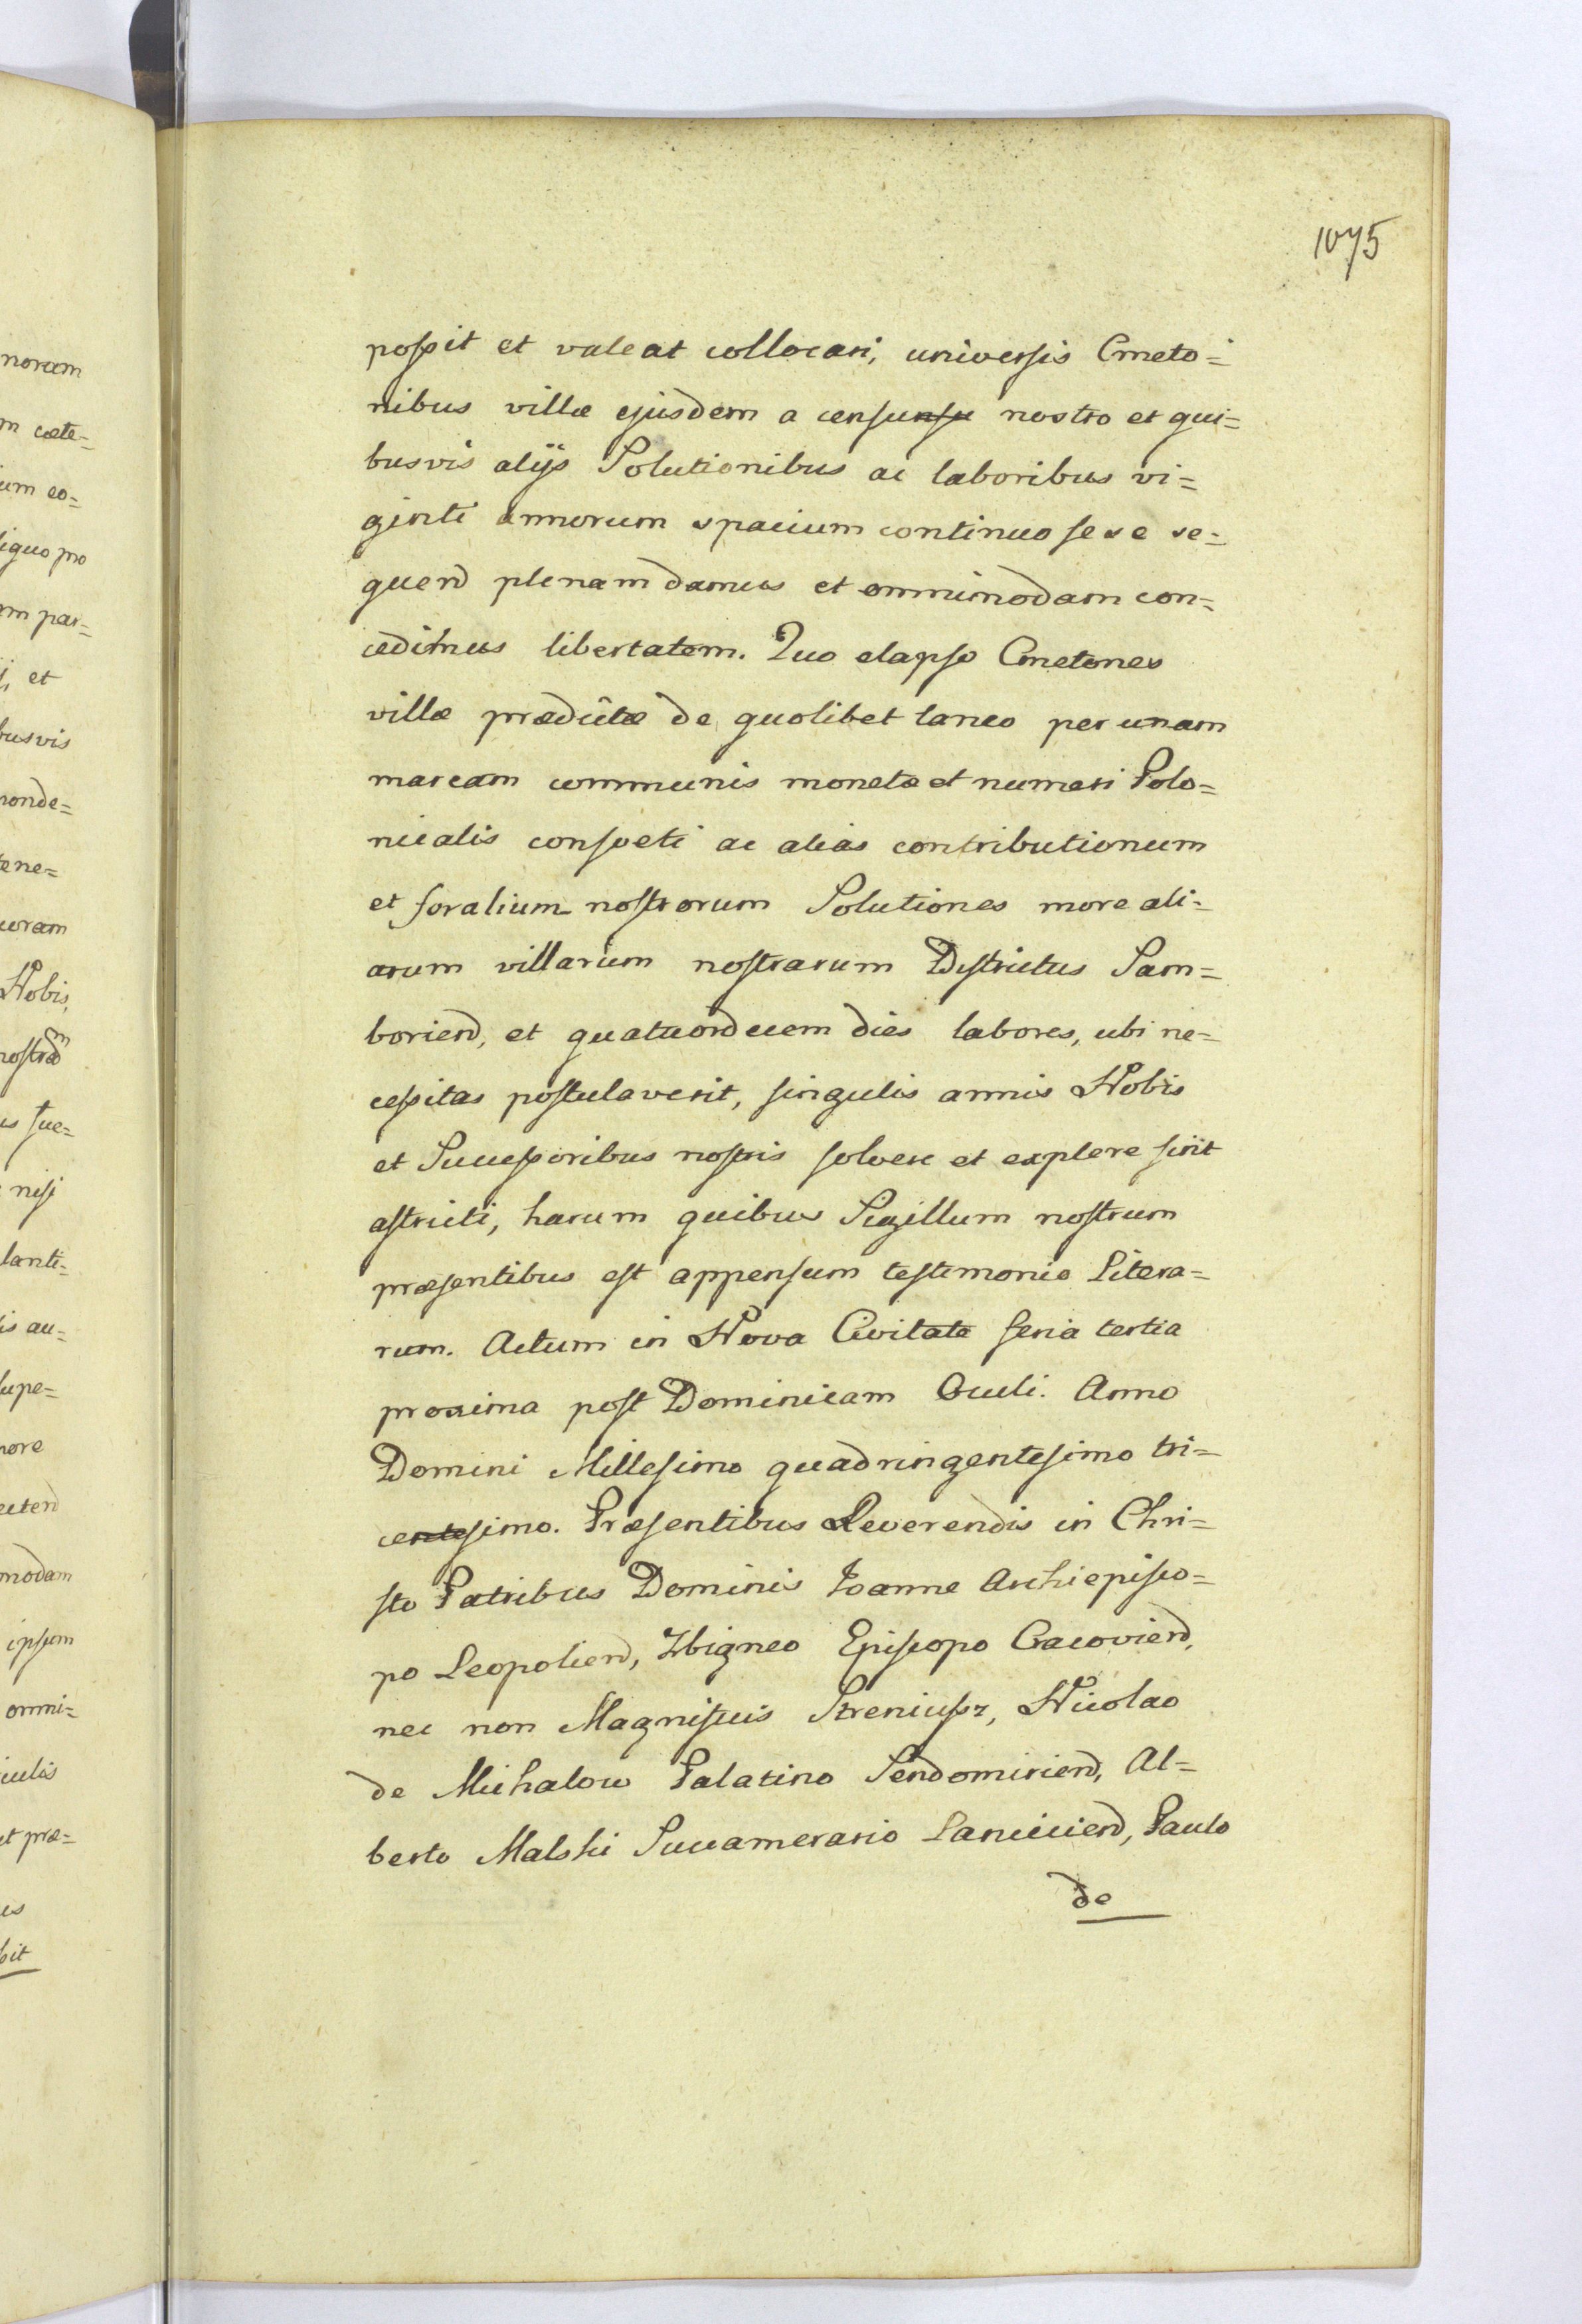 1075
possit et valeat collocari, universis Cmeto=
nibus villæ ejusdem a censunsu nostro et qui=
busvis alijs Solutionibus ac laboribus vi=
ginti annorum spacium continuo sese se=
quend plenam damus et omnimodam con=
cedimus libertatem. Quo elapso Cmetones
villæ prædictæ de quolibet laneo per unam
marcam communis monetæ et numeri Polo=
nicalis consveti ac alias contributionum
et foralium nostrorum Solutiones more ali=
arum villarum nostrarum Districtus Sam=
boriend, et quatuordecem dies labores, ubi ne=
cessitas postulaverit, singulis annis Nobis
et Successoribus nostris solvere et explere sint
astricti, harum quibus Sigillum nostrum
præsentibus est appensum testimonio Litera=
rum. Actum in Nova Civitate feria tertia
proxima post Dominicam Oculi. Anno
Domini Millesimo quadringentesimo tri=
centesimo. Præsentibus Reverendis in Chri=
sto Patribus Dominis Joanne Archiepisco=
po Leopoliend, Zbigneo Episcopo Cracoviend,
nec non Magnificis Streniusz, Nicolao
de Michalow Palatino Sendomiriend, Al=
berto Malski Succamerario Lanciciend, Paulo
de
noram
m cæte=
um eo=
liquo pro
am par=
j, et
busvis
ponde=
tene=
Nobis,
nisi
lanti=
is au=
supe=
more
modam
ipsum
omni=
iculis
et præ=